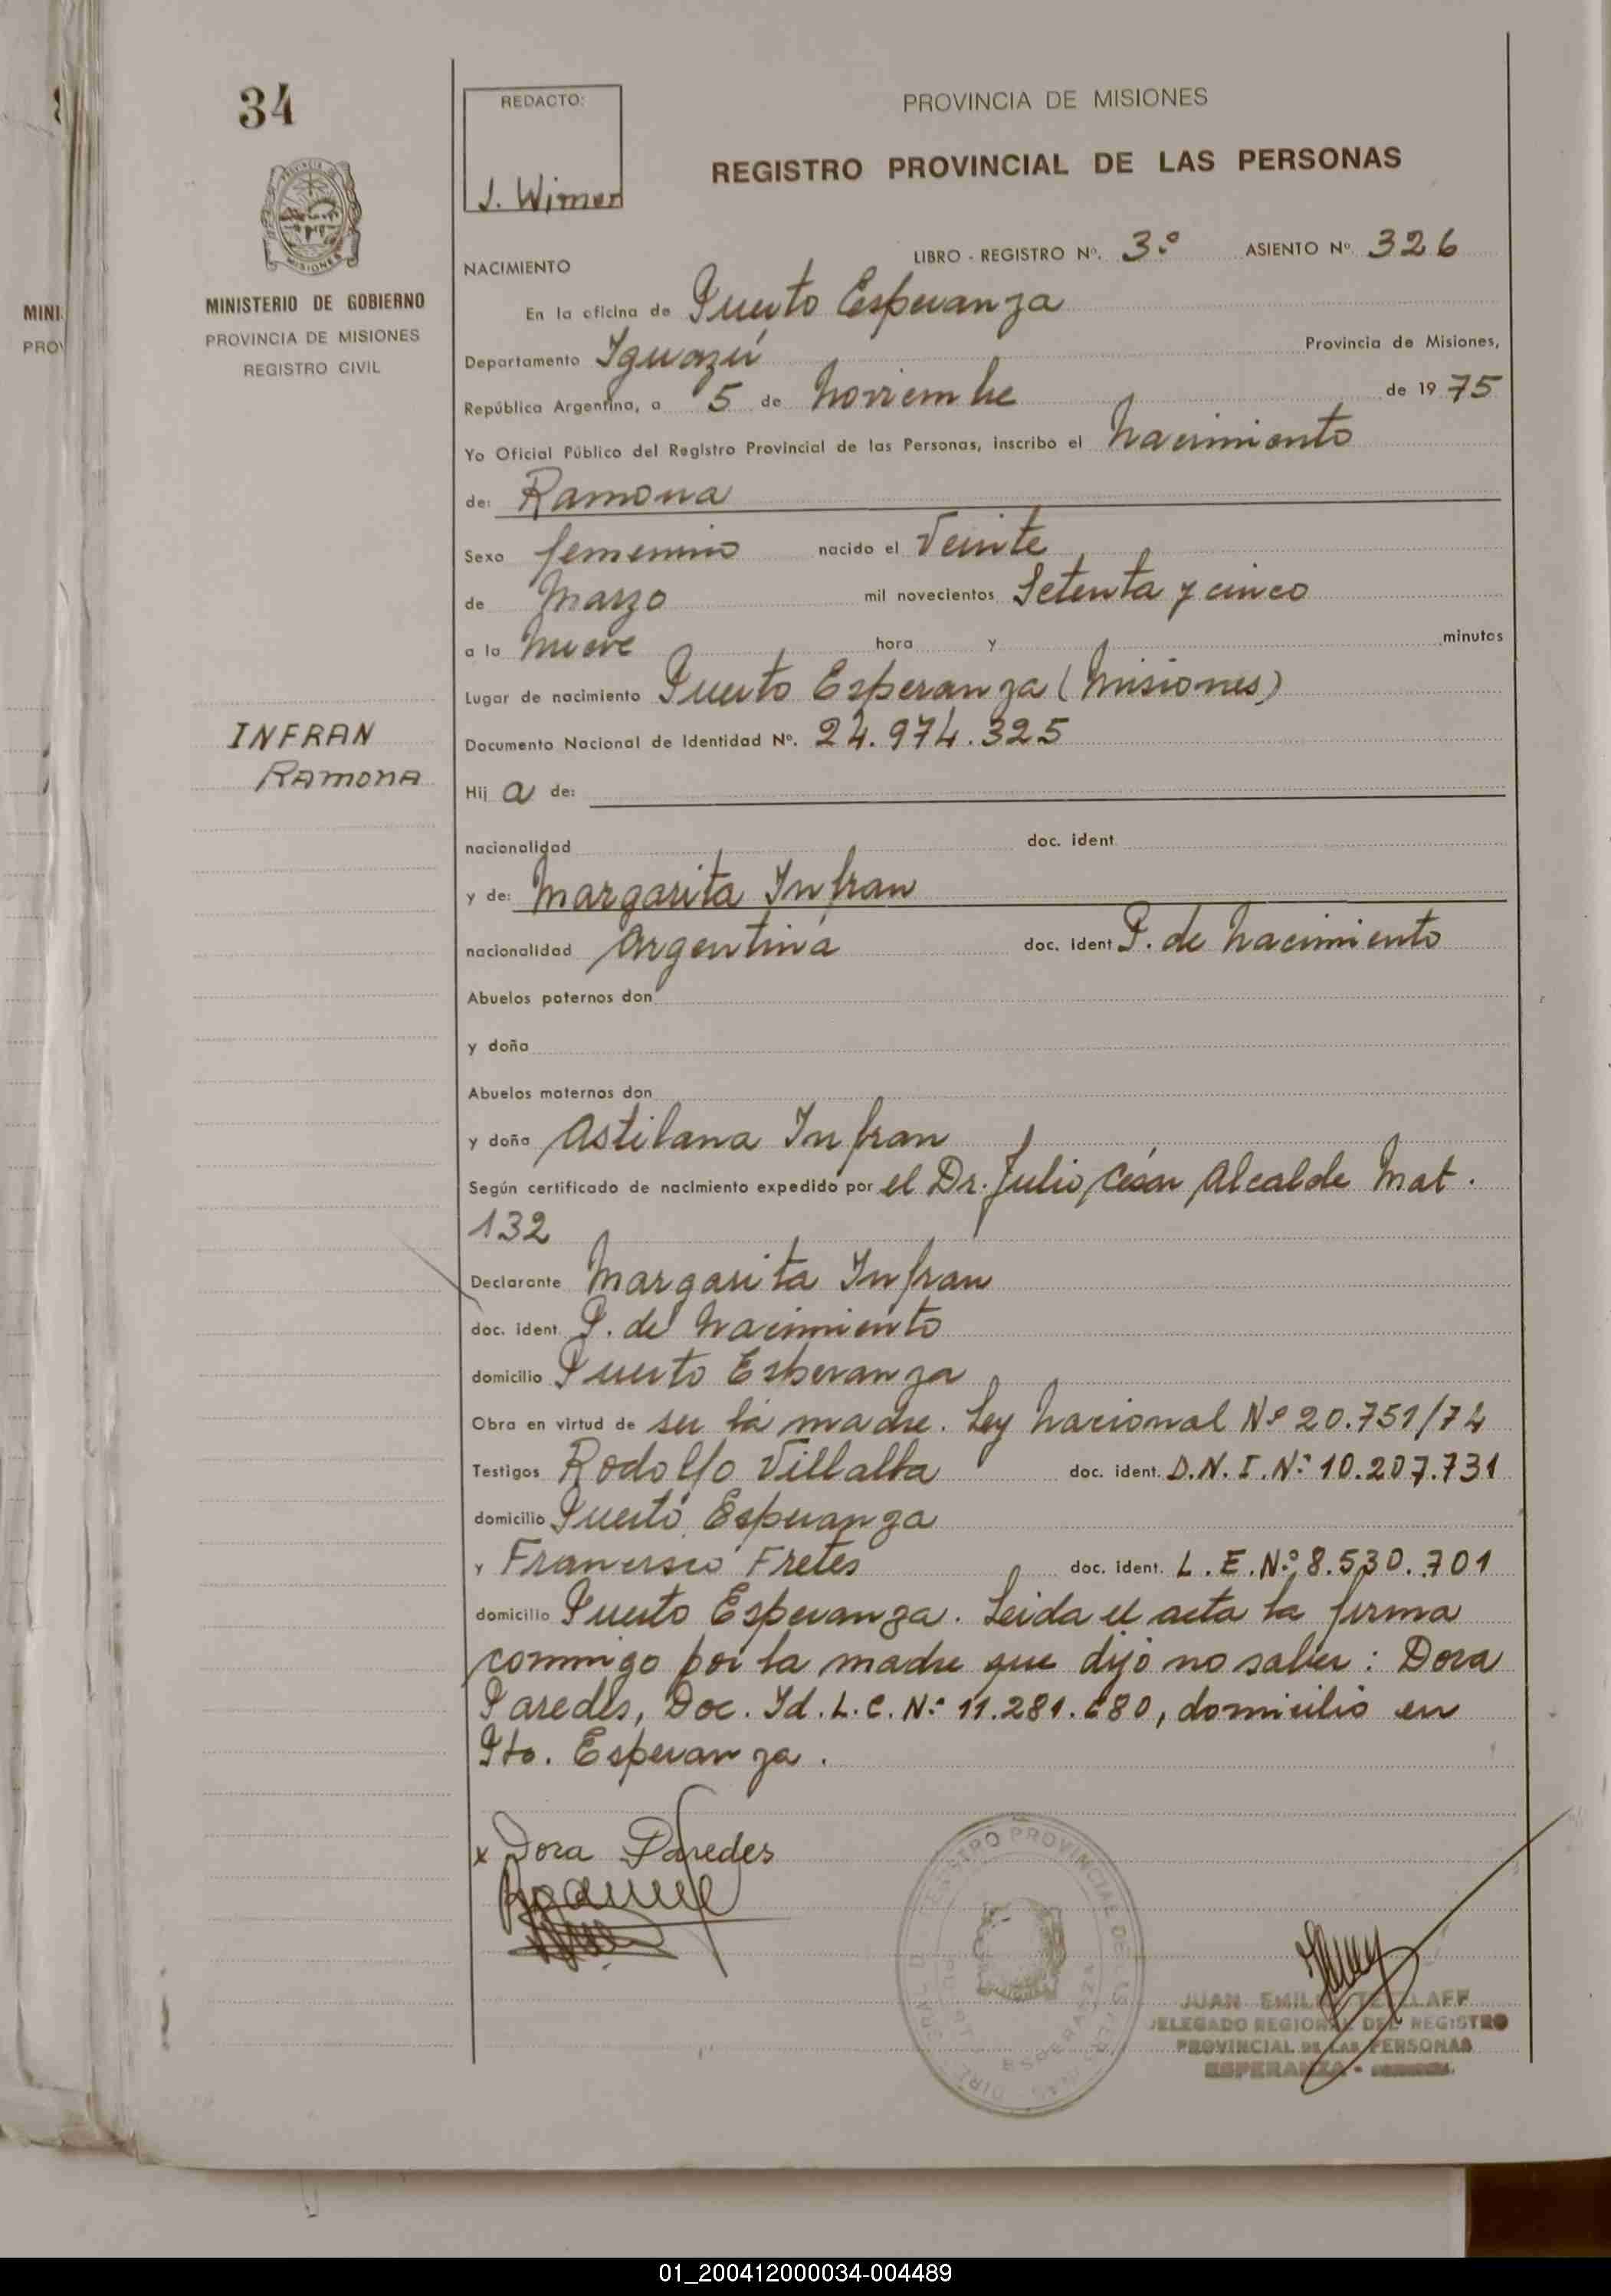 34
REDACTO:
J. Wimer
PROVINCIA DE MISIONES
REGISTRO PROVINCIAL DE LAS PERSONAS
MINISTERIO DE GOBIERNO
PROVINCIA DE MISIONES
REGISTRO CIVIL
MINI
PRO
LIBRO - REGISTRO Nº. 3.º ASIENTO Nº. 326
NACIMIENTO
En la oficina de Puerto Esperanza
Departamento Iguazú Provincia de Misiones,
República Argentina, a 5 de Noviembre de 19 75
Yo Oficial Público del Registro Provincial de las Personas, inscribo el Nacimiento
de: Ramona
Sexo femenino nacido el Veinte
de Marzo mil novecientos Setenta y cinco
a la Nueve hora y minutos
Lugar de nacimiento Puerto Esperanza (Misiones)
INFRAN
Ramona
Documento Nacional de Identidad Nº. 24.974.325
Hij a de:
nacionalidad doc. ident.
y de: Margarita Infran
nacionalidad Argentina doc. ident P. de Nacimiento
Abuelos paternos don
y doña
Abuelos maternos don
y doña Astilana Infran
Según certificado de nacimiento expedido por el Dr. Julio César Alcalde Mat.
132
Declarante Margarita Infran
doc. ident. P. de Nacimiento
domicilio Puerto Esperanza
Obra en virtud de ser la madre. Ley Nacional Nº 20.751/74
Testigos Rodolfo Villalba doc. ident. D.N.I.Nº 10.207.731
domicilio Puerto Esperanza
y Francisco Fretes doc. ident. L.E.Nº 8.530.701
domicilio Puerto Esperanza. Leida el acta la firma
conmigo por la madre que dijo no saber: Dora
Paredes, Doc. Id. L.C.Nº 11.281.680, domicilio en
Pto. Esperanza.
x Dora Paredes
REGISTRO PROVINCIAL DE LAS PERSONAS
ESPERANZA
JUAN EMILIO
DELEGADO REGIONAL DEL REGISTRO
PROVINCIAL DE LAS PERSONAS
ESPERANZA -
01_200412000034-004489